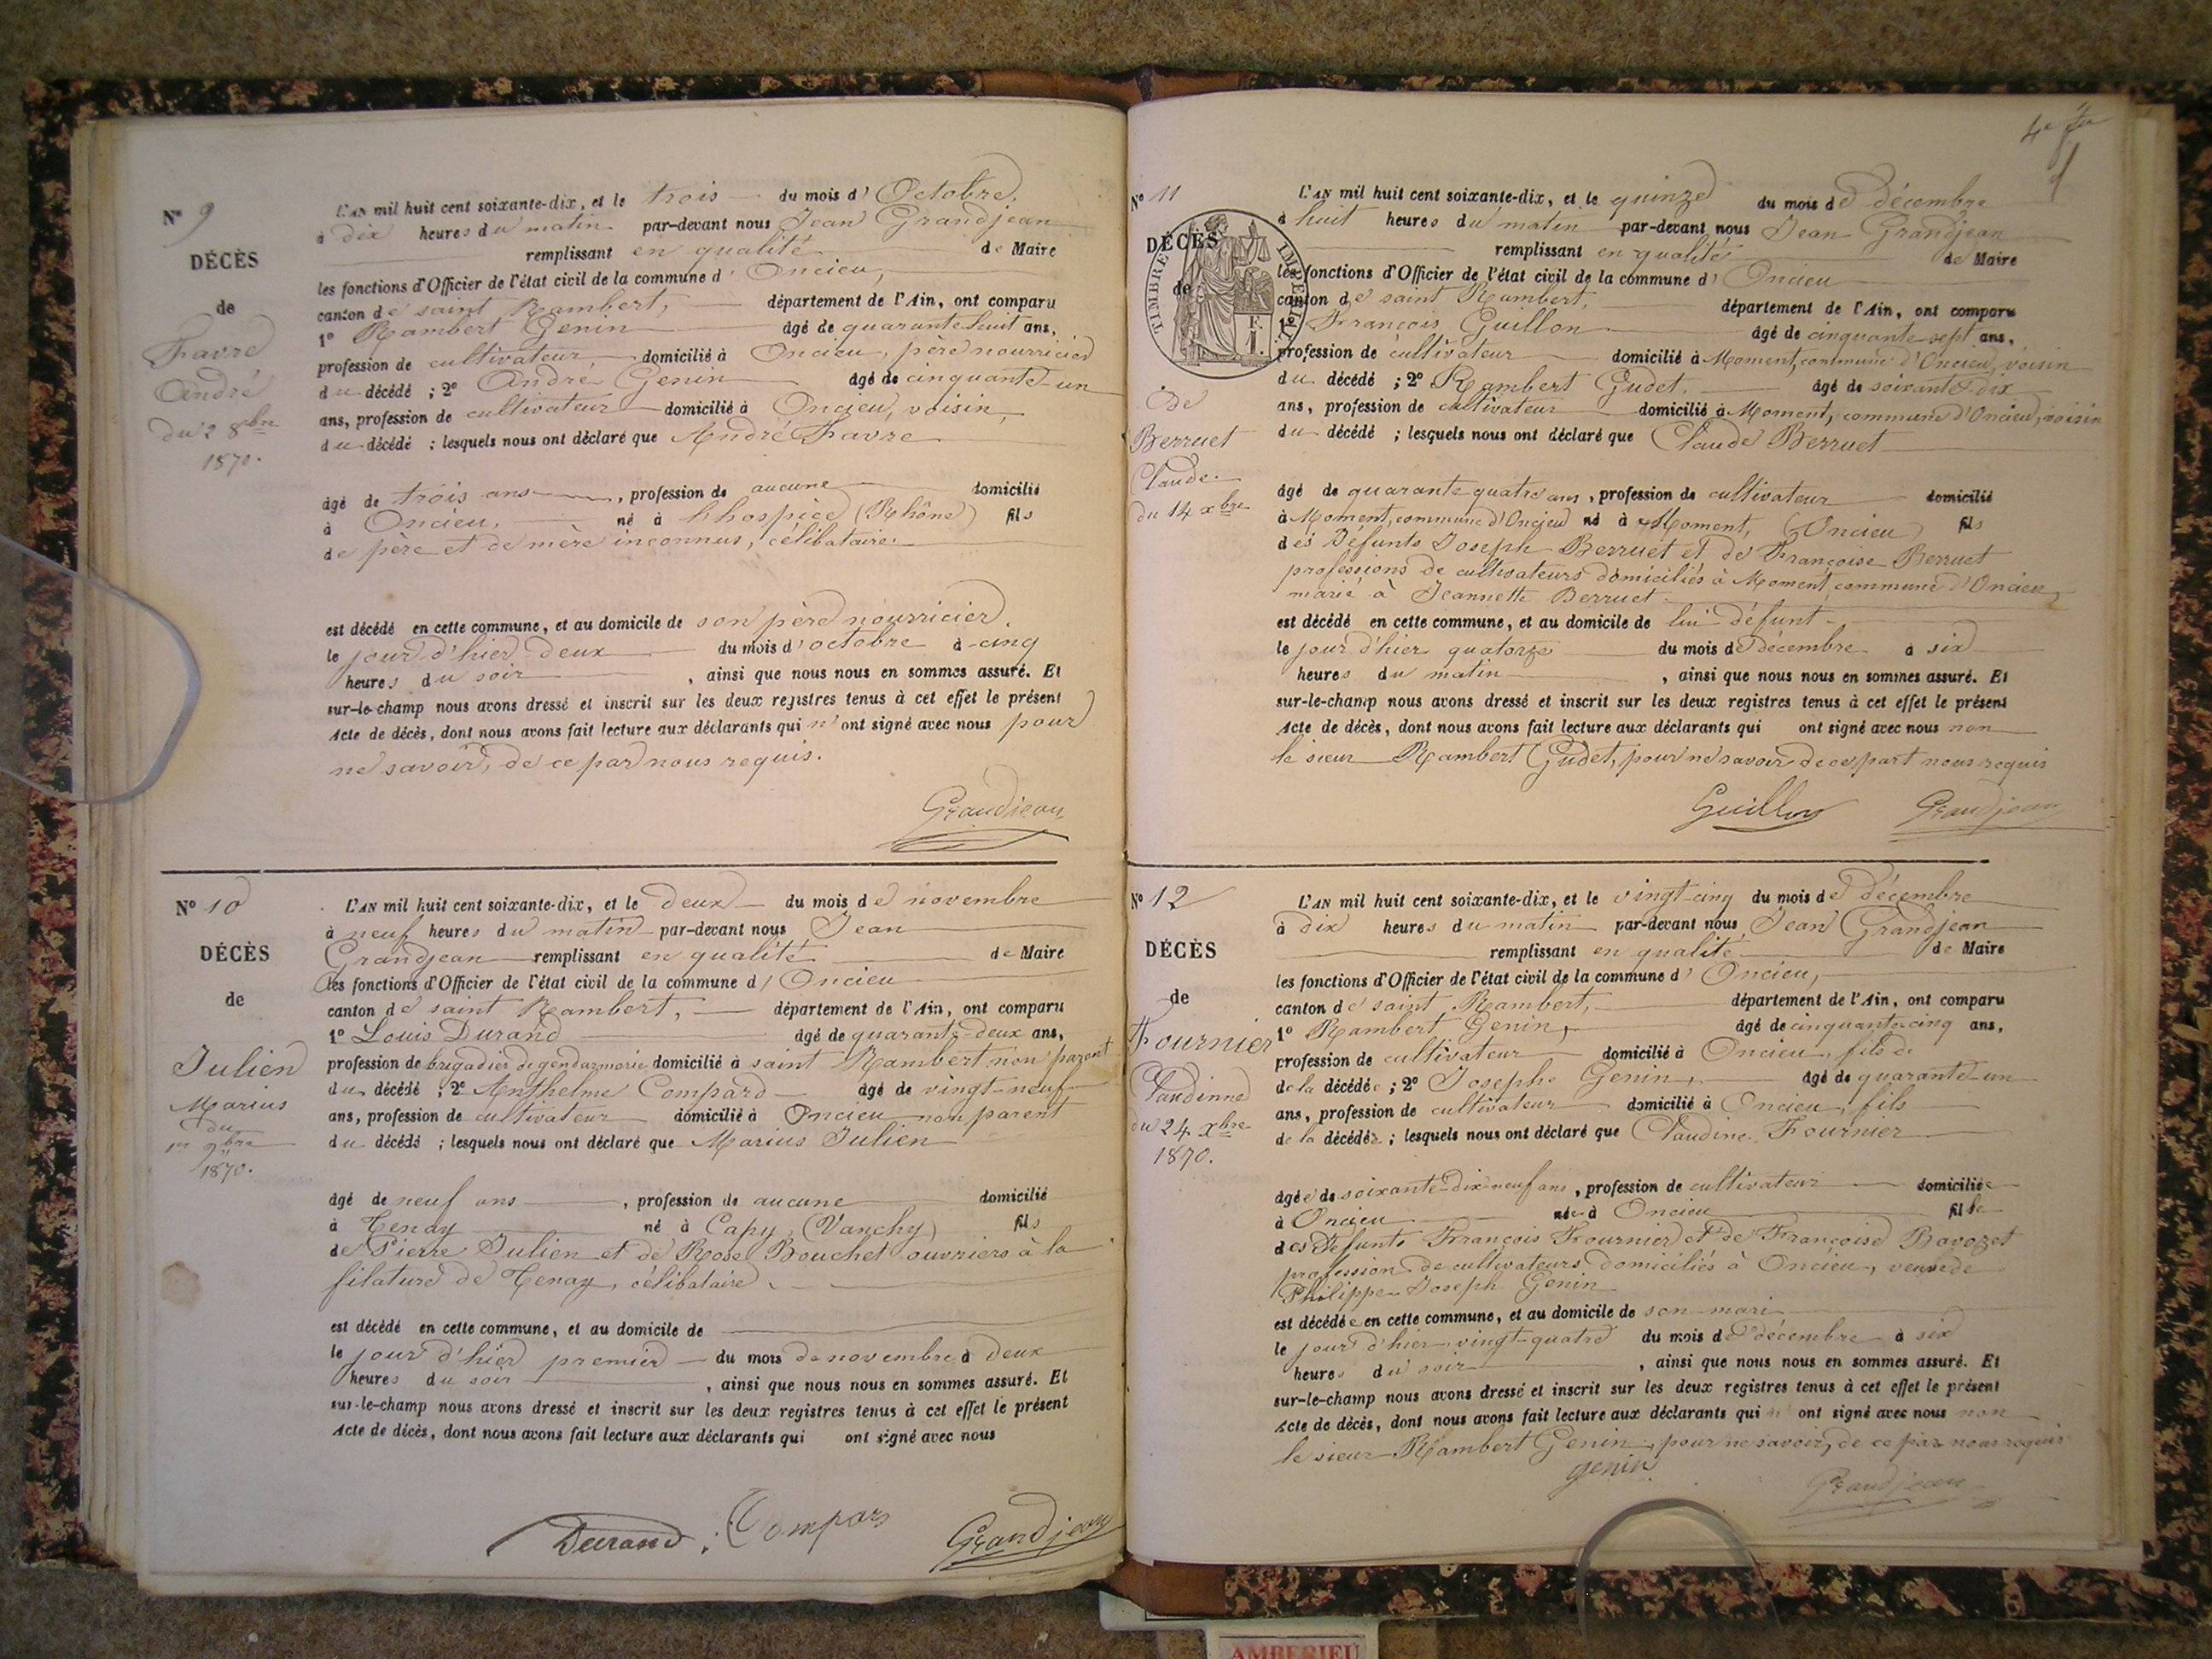 N° 9
DÉCÈS
de
Favre
André
du 2 8bre
1870.
L'AN mil huit cent soixante-dix, et le trois du mois d'Octobre,
à dix heures du matin par-devant nous Jean Grandjean
remplissant en qualité de Maire
les fonctions d'Officier de l'état civil de la commune d'Oncieu,
canton de saint Rambert, département de l'Ain, ont comparu
1° Rambert Genin âgé de quarante huit ans,
profession de cultivateur domicilié à Oncieu, père nourricier
du décédé ; 2° André Genin âgé de cinquante-un
ans, profession de cultivateur domicilié à Oncieu, voisin,
du décédé ; lesquels nous ont déclaré que André Favre
âgé de trois ans, profession de aucune domicilié
à Oncieu, né à l'hospice (Rhône) fils
de père et de mère inconnus, célibataire.
est décédé en cette commune, et au domicile de son père nourricier,
le jour d'hier deux du mois d'octobre à cinq
heures du soir, ainsi que nous nous en sommes assuré. Et
sur-le-champ nous avons dressé et inscrit sur les deux registres tenus à cet effet le présent
Acte de décès, dont nous avons fait lecture aux déclarants qui n'ont signé avec nous pour
ne savoir, de ce par nous requis.
Grandjean
N° 10
DÉCÈS
de
Julien
Marius
du
1er 9bre
1870.
L'AN mil huit cent soixante-dix, et le deux du mois de novembre
à neuf heures du matin par-devant nous Jean
Grandjean remplissant en qualité de Maire
les fonctions d'Officier de l'état civil de la commune d'Oncieu
canton de saint Rambert, département de l'Ain, ont comparu
1° Louis Durand âgé de quarante-deux ans,
profession de brigadier de gendarmerie domicilié à saint Rambert non parent
du décédé ; 2° Anthelme Compard âgé de vingt-neuf
ans, profession de cultivateur domicilié à Oncieu non parent
du décédé ; lesquels nous ont déclaré que Marius Julien
âgé de neuf ans, profession de aucune domicilié
à Tenay né à Capy, (Vanchy) fils
de Pierre Julien et de Rose Bouchet ouvriers à la
filature de Tenay, célibataire.
est décédé en cette commune, et au domicile de
le jour d'hier premier du mois de novembre à deux
heures du soir, ainsi que nous nous en sommes assuré. Et
sur-le-champ nous avons dressé et inscrit sur les deux registres tenus à cet effet le présent
Acte de décès, dont nous avons fait lecture aux déclarants qui ont signé avec nous
Durand Compars Grandjean
N° 11
DÉCÈS
de
TIMBRE IMPERIAL
De
Berruet
Claude.
du 14 xbre
L'AN mil huit cent soixante-dix, et le quinze du mois de décembre
à huit heures du matin par-devant nous Jean Grandjean
remplissant en qualité de Maire
les fonctions d'Officier de l'état civil de la commune d'Oncieu
canton de saint Rambert, département de l'Ain, ont comparu
1° François Guillon âgé de cinquante sept ans,
profession de cultivateur domicilié à Moment, commune d'Oncieu, voisin
du décédé ; 2° Rambert Gudet, âgé de soixante-dix
ans, profession de cultivateur domicilié à Moment, commune d'Oncieu, voisin
du décédé ; lesquels nous ont déclaré que Claude Berruet
âgé de quarante quatre ans, profession de cultivateur domicilié
à Moment, commune d'Oncieu né à Moment, (Oncieu) fils
des Défunts Joseph Berruet et de Françoise Berruet
professions de cultivateurs domiciliés à Moment, commune d'Oncieu,
marié à Jeannette Berruet
est décédé en cette commune, et au domicile de lui défunt
le jour d'hier quatorze du mois de décembre à six
heures du matin, ainsi que nous nous en sommes assuré. Et
sur-le-champ nous avons dressé et inscrit sur les deux registres tenus à cet effet le présent
Acte de décès, dont nous avons fait lecture aux déclarants qui ont signé avec nous non
le sieur Rambert Gudet, pour ne savoir de ce part nous requis
Guillon Grandjean
N° 12
DÉCÈS
de
Fournier
Claudinne
du 24 xbre
1870.
L'AN mil huit cent soixante-dix, et le vingt-cinq du mois de décembre
à dix heures du matin par-devant nous Jean Grandjean
remplissant en qualité de Maire
les fonctions d'Officier de l'état civil de la commune d'Oncieu,
canton de saint Rambert, département de l'Ain, ont comparu
1° Rambert Genin, âgé de cinquante-cinq ans,
profession de cultivateur domicilié à Oncieu, fils de
de la décédée ; 2° Joseph Genin, âgé de quarante-un
ans, profession de cultivateur domicilié à Oncieu, fils
de la décédée ; lesquels nous ont déclaré que Claudine Fournier
âgée de soixante-dix-neuf ans, profession de cultivateur domiciliée
à Oncieu née à Oncieu fille
des Défunts François Fournier et de Françoise Bavozet
profession de cultivateurs domiciliés à Oncieu, veuve de
Philippe Joseph Genin
est décédée en cette commune, et au domicile de son mari
le jour d'hier vingt-quatre du mois de décembre à six
heures du soir, ainsi que nous nous en sommes assuré. Et
sur-le-champ nous avons dressé et inscrit sur les deux registres tenus à cet effet le présent
Acte de décès, dont nous avons fait lecture aux déclarants qui n'ont signé avec nous non
le sieur Rambert Genin, pour ne savoir, de ce par nous requis
genin Grandjean
AMBERIEU